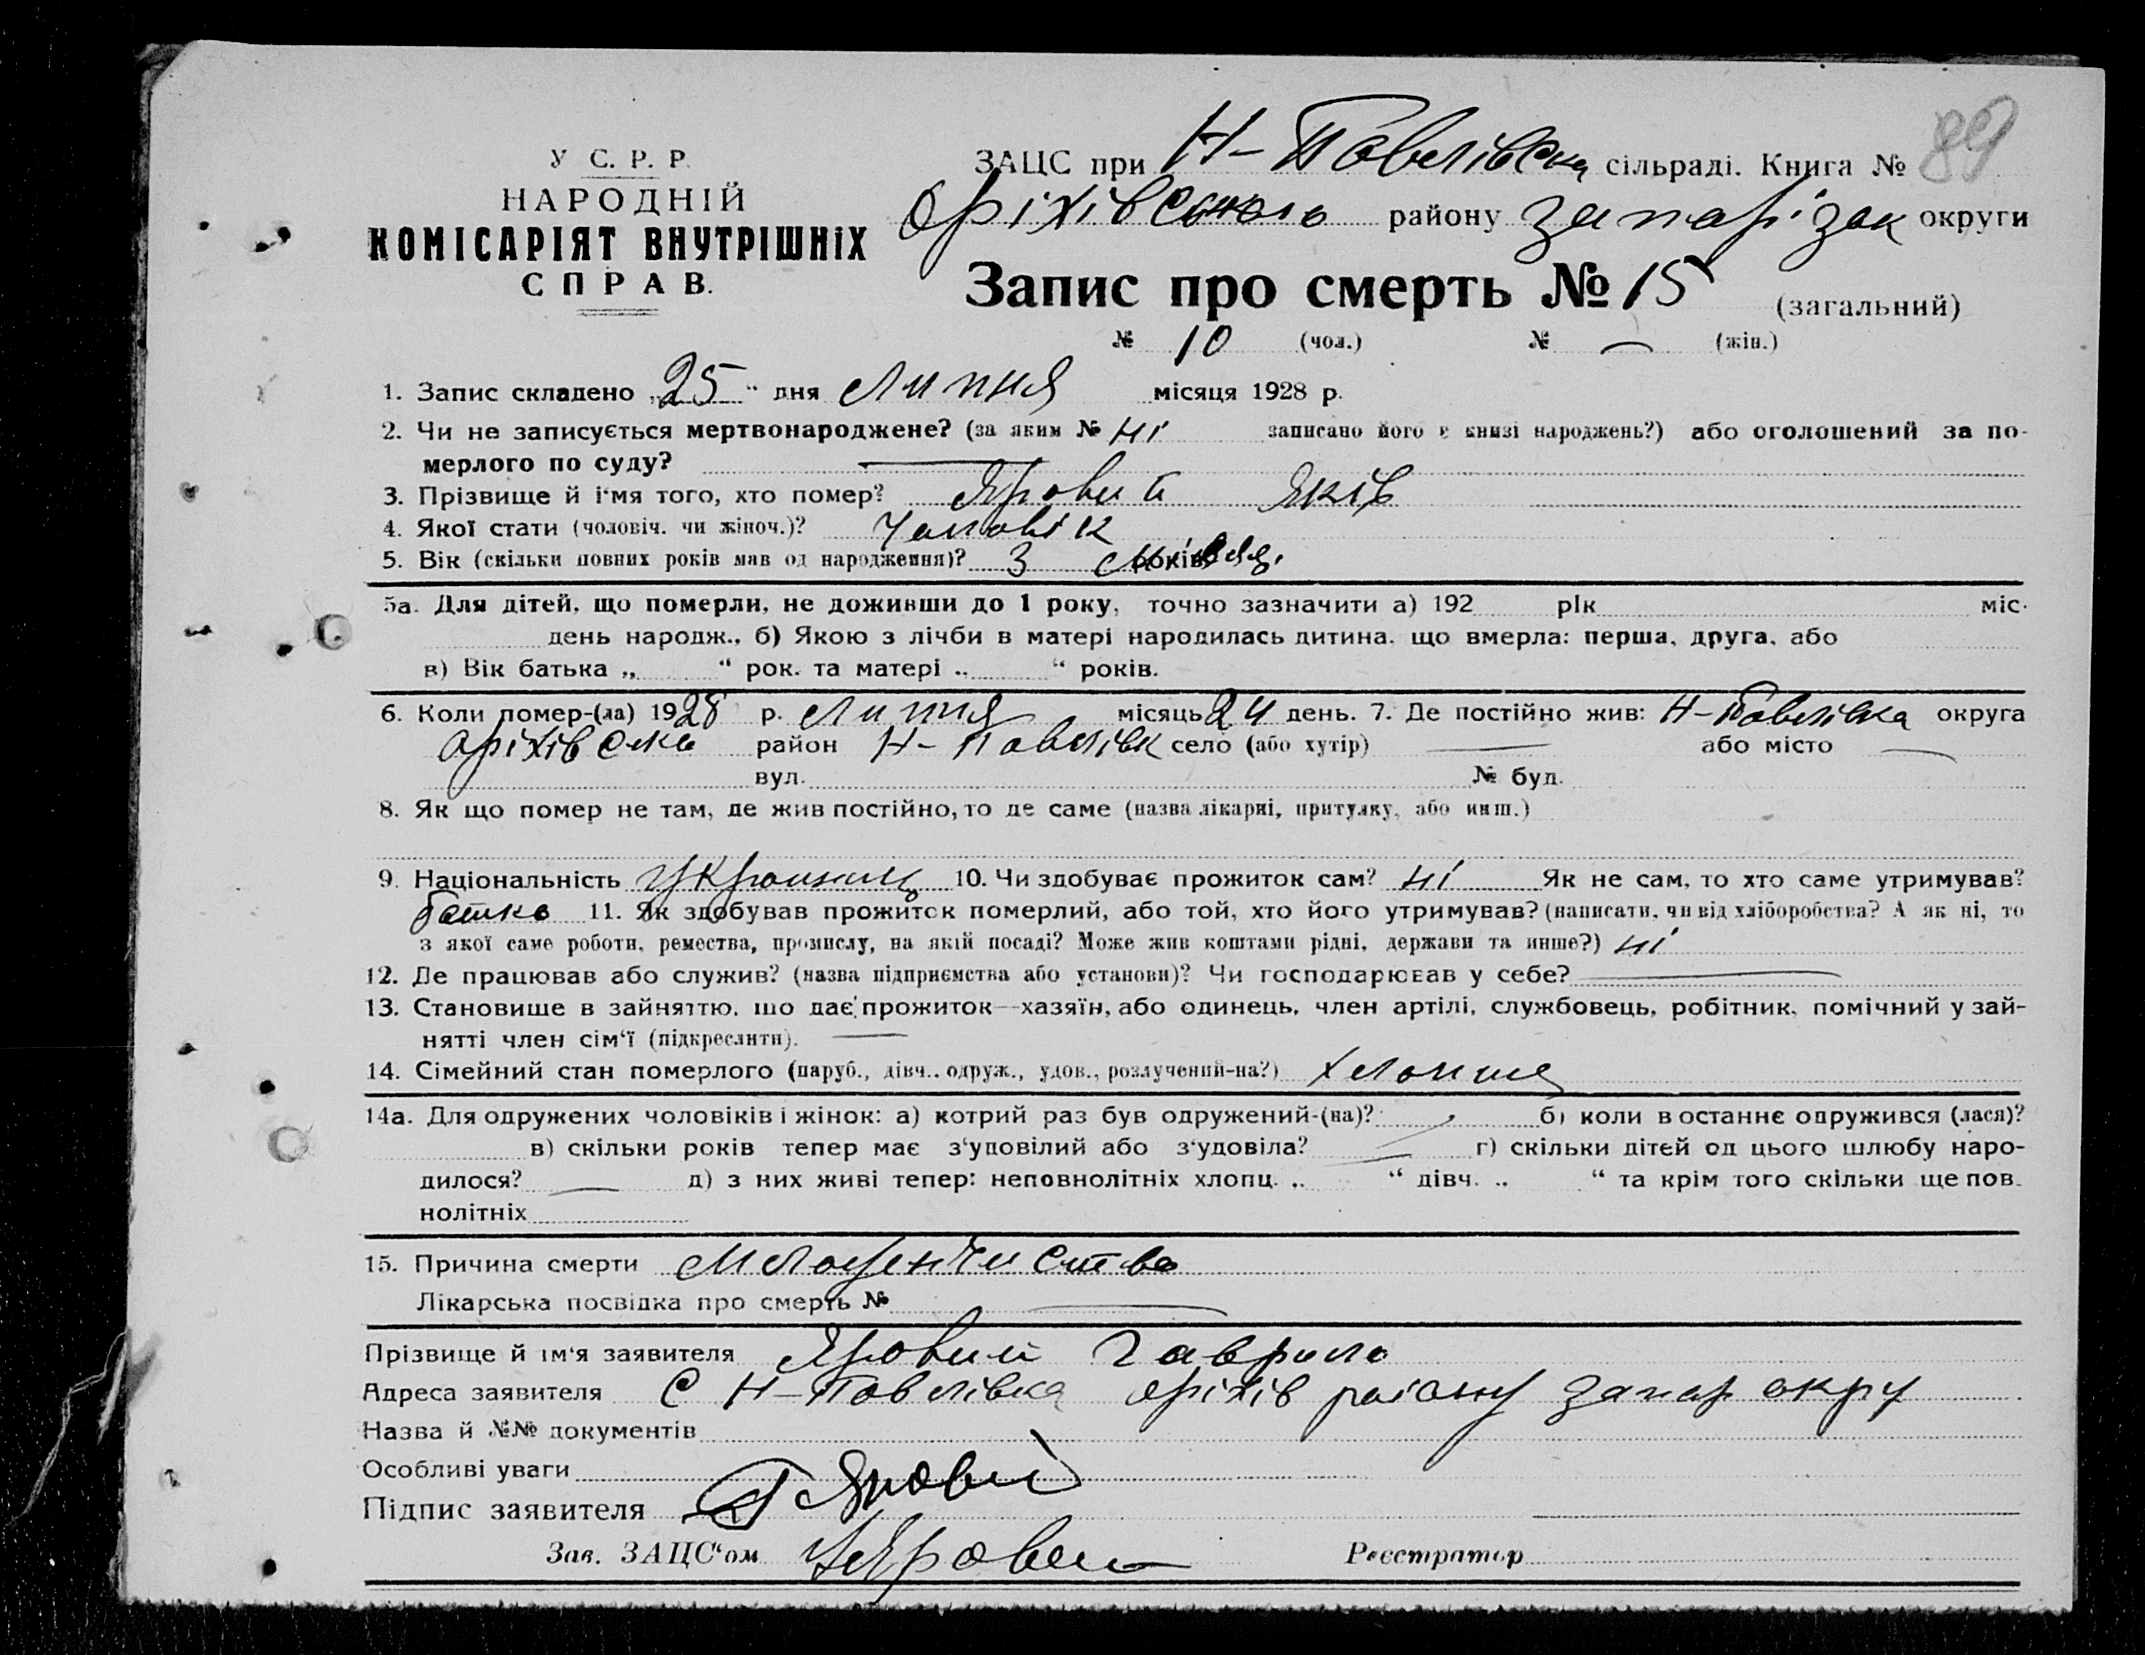 89
У С. Р. Р.
НАРОДНІЙ
КОМІСАРІЯТ ВНУТРІШНІХ
СПРАВ.
ЗАЦС при Н-Павлівска сільраді. Книга №
Оріхівського району Запоріzок округи
Запис про смерть № 15 (загальний)
№ 10 (чол.) № — (жін.)
1. Запис складено „25“ дня Липня місяця 1928 р.
2. Чи не записується мертвонароджене? (за яким № ні записано його в книзі народжень?) або оголошений за по-
мерлого по суду? —
3. Прізвище й ім'я того, хто помер? Яровий Яків
4. Якої стати (чоловіч. чи жіноч.)? Чоловік
5. Вік (скільки повних років мав од народження)? 3 років
5а. Для дітей, що померли, не доживши до 1 року, точно зазначити а) 192 рік міс.
день народж., б) Якою з лічби в матері народилась дитина, що вмерла: перша, друга, або
в) Вік батька „ “ рок. та матері „ “ років.
6. Коли помер-(ла) 1928 р. Липня місяць 24 день. 7. Де постійно жив: Н-Павлівка округа
Оріхівско район Н-Павлівк село (або хутір) — або місто —
вул. № буд.
8. Як що помер не там, де жив постійно, то де саме (назва лікарні, притулку, або инш.)
9. Національність Украинец 10. Чи здобуває прожиток сам? ні Як не сам, то хто саме утримував?
батько 11. Як здобував прожиток померлий, або той, хто його утримував? (написати, чи від хліборобства? А як ні, то
з якої саме роботи, ремества, промислу, на якій посаді? Може жив коштами рідні, держави та инше?) ні
12. Де працював або служив? (назва підприємства або установи)? Чи господарював у себе? —
13. Становище в зайняттю, що дає прожиток—хазяїн, або одинець, член артілі, службовець, робітник, помічний у зай-
нятті член сім'ї (підкреслити). —
14. Сімейний стан померлого (паруб., дівч., одруж., удов., розлучений-на?)
14а. Для одружених чоловіків і жінок: а) котрий раз був одружений-(на)? б) коли востаннє одружився (лася)?
в) скільки років тепер має з'удовілий або з'удовіла? — г) скільки дітей од цього шлюбу наро-
дилося? — д) з них живі тепер: неповнолітніх хлопц. „ “ дівч. „ “ та крім того скільки ще пов-
нолітніх
15. Причина смерти
Лікарська посвідка про смерть № —
Прізвище й ім'я заявителя Яровий Гаврило
Адреса заявителя С Н-Павлівка Оріхів раіону Запор окру
Назва й №№ документів
Особливі уваги
Підпис заявителя Г Яровий
Зав. ЗАЦС'ом Реєстратор